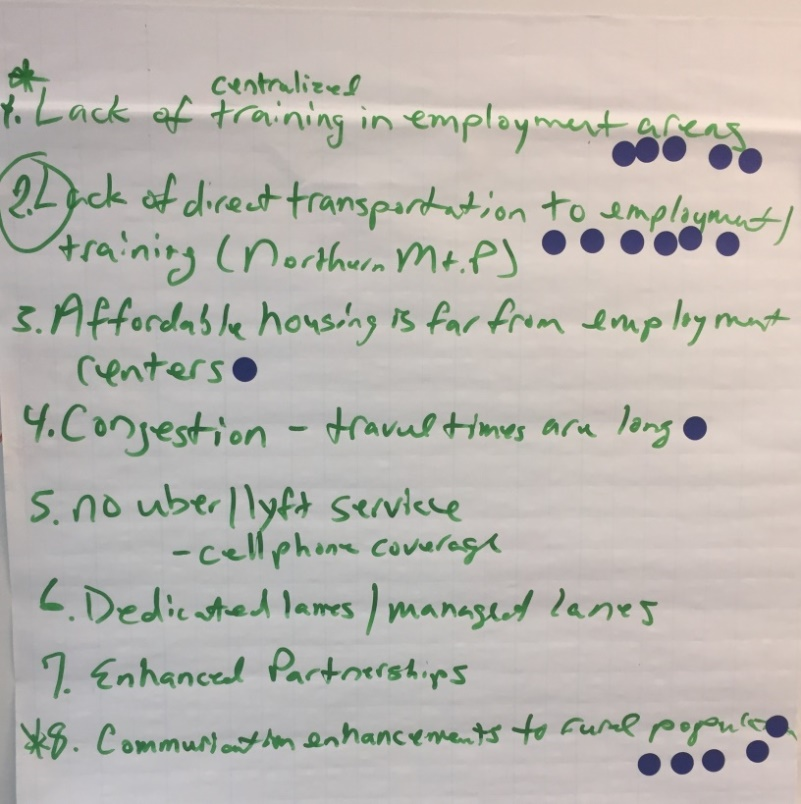 * centralized
1. Lack of training in employment areas
2. Lack of direct transportation to employment/
training (Northern Mt. P)
3. Affordable housing is far from employment
centers
4. Congestion - travel times are long
5. no uber/lyft service
- cell phone coverage
6. Dedicated lanes / managed lanes
7. Enhanced Partnerships
*8. Communication enhancements to rural